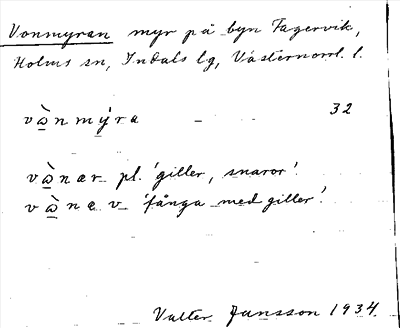 Vonmyran myr på byn Fagervik,
Holms sn, Indals lg, Västernorrl. l.
vɷ̀nmýra - - 32
vɷ̀nær pl. 'giller, snaror'.
vɷ̀næ v 'fånga med giller'.
Valter Jansson 1934.